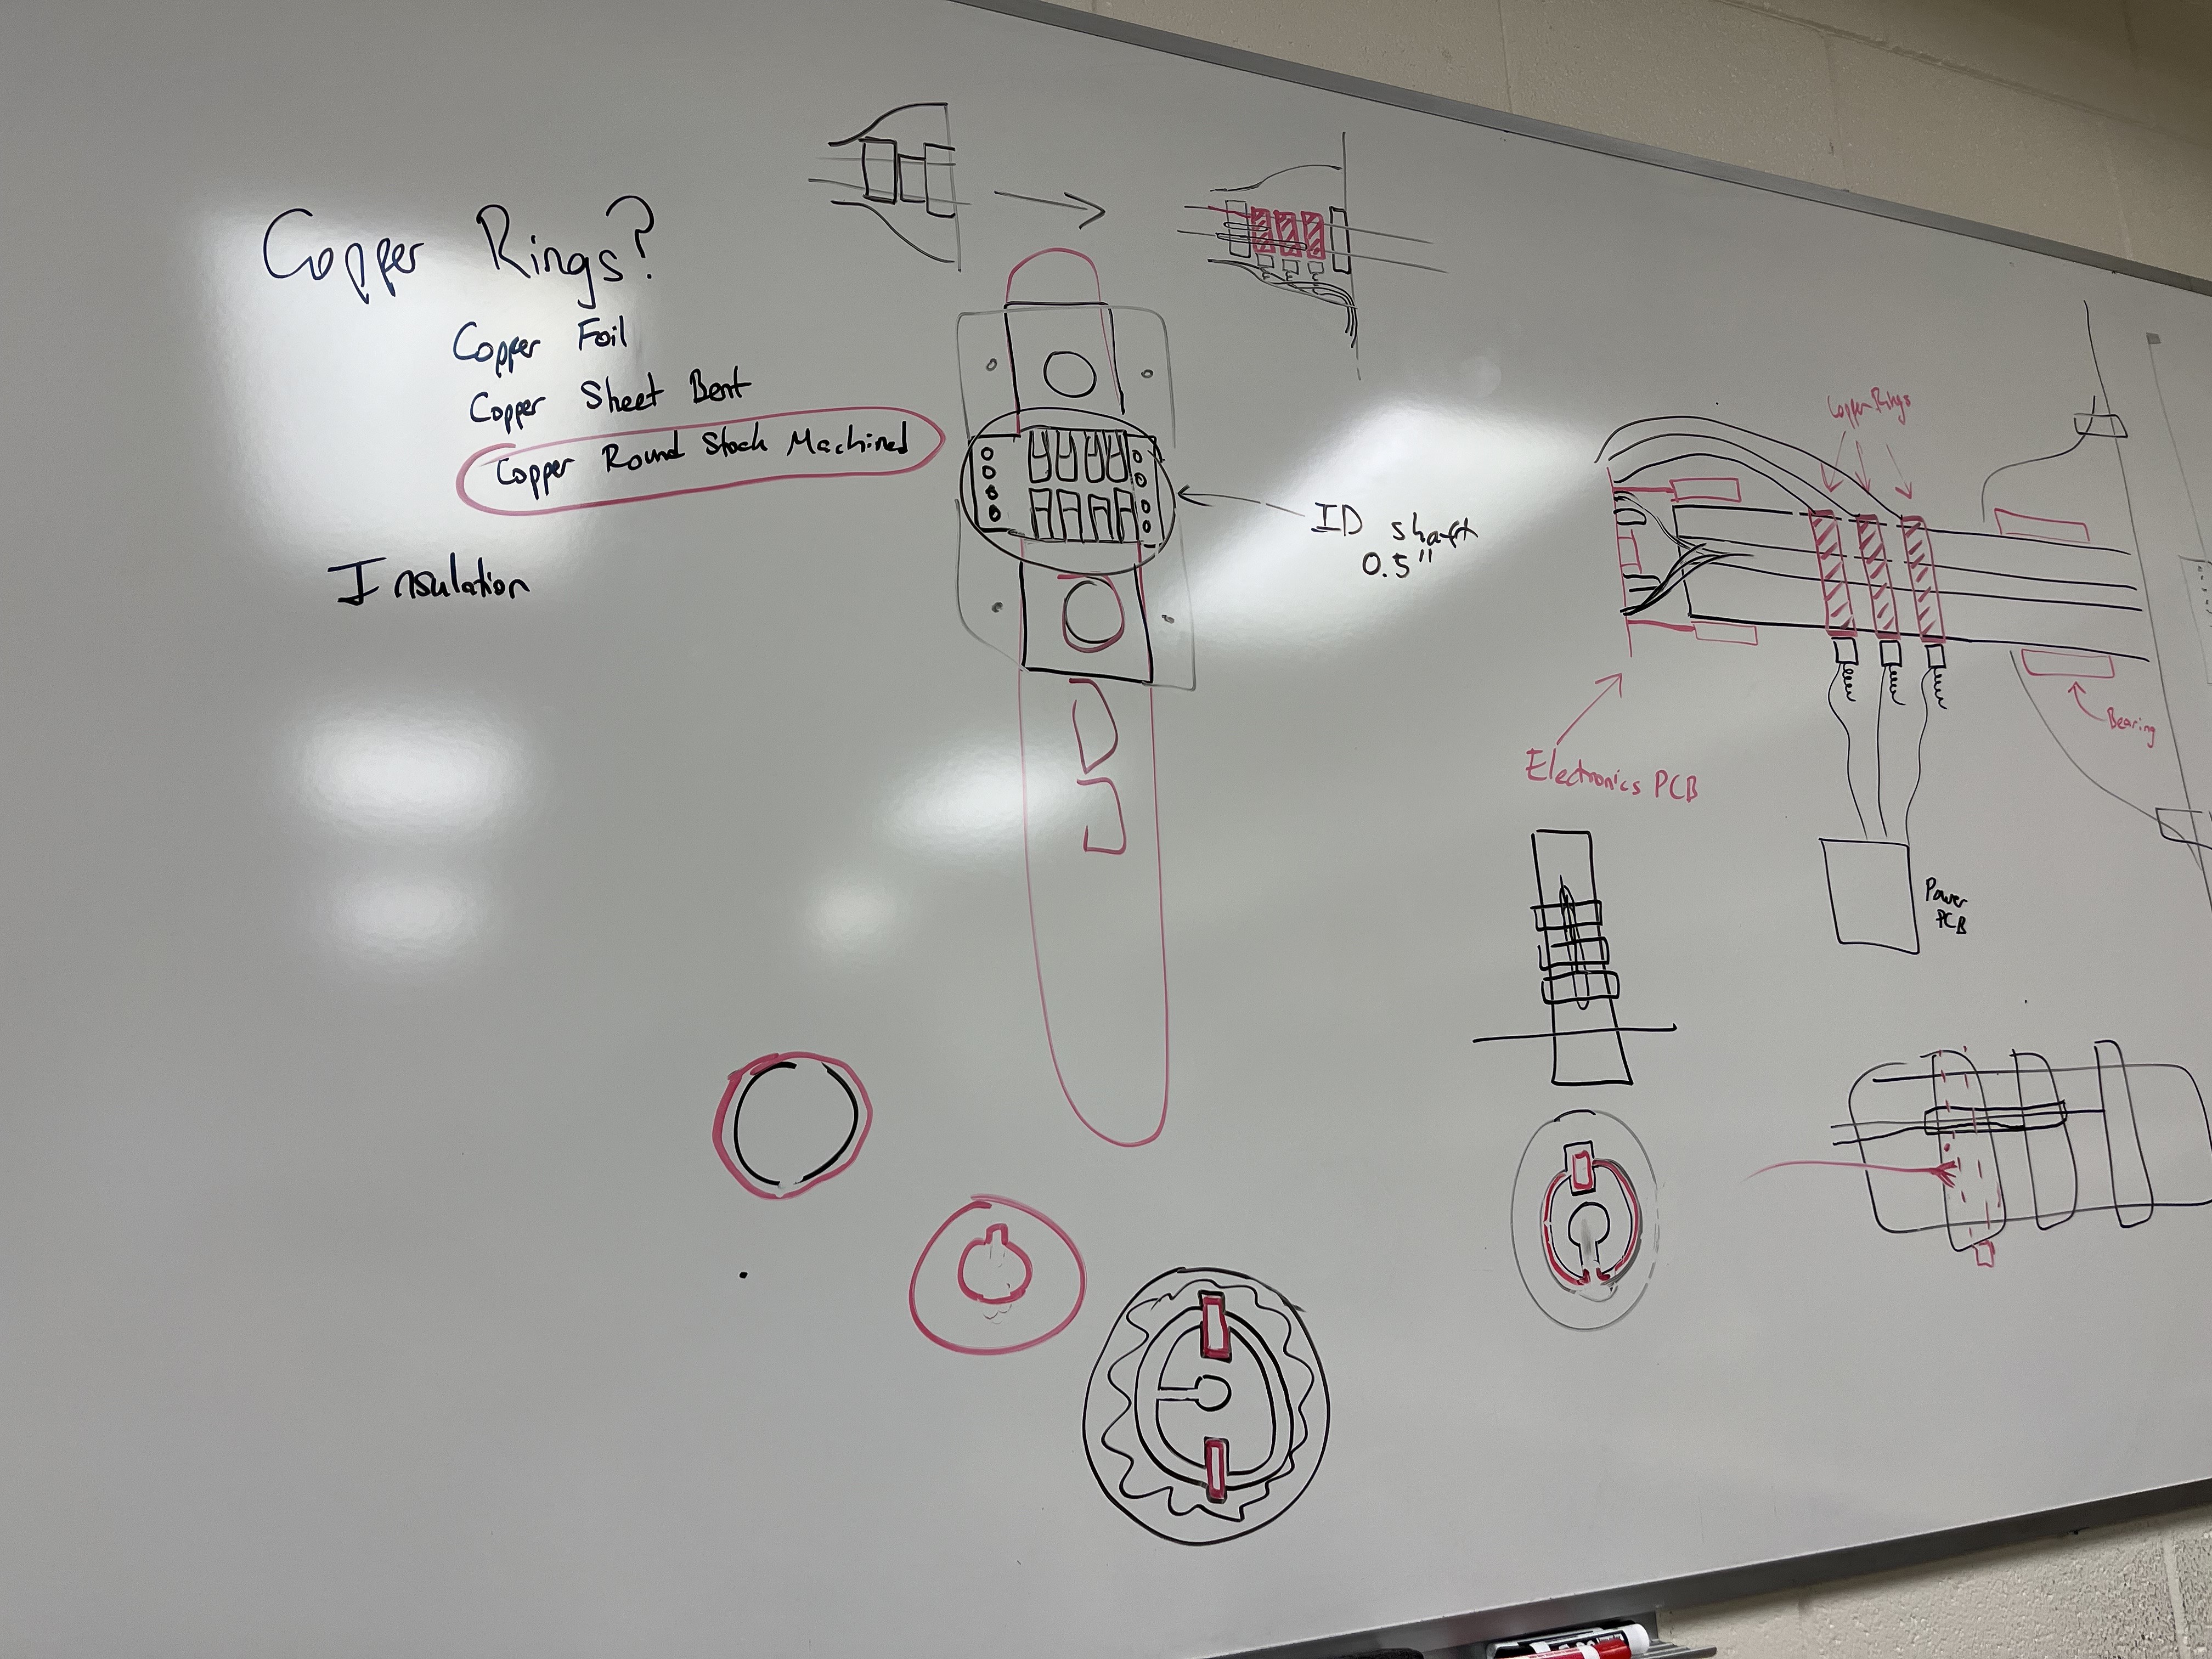 Copper Rings?
Copper Foil
Copper Sheet Bent
Copper Round Stock Machined
Insulation
ID shaft
0.5"
Copper Rings
Bearing
Electronics PCB
Power
PCB